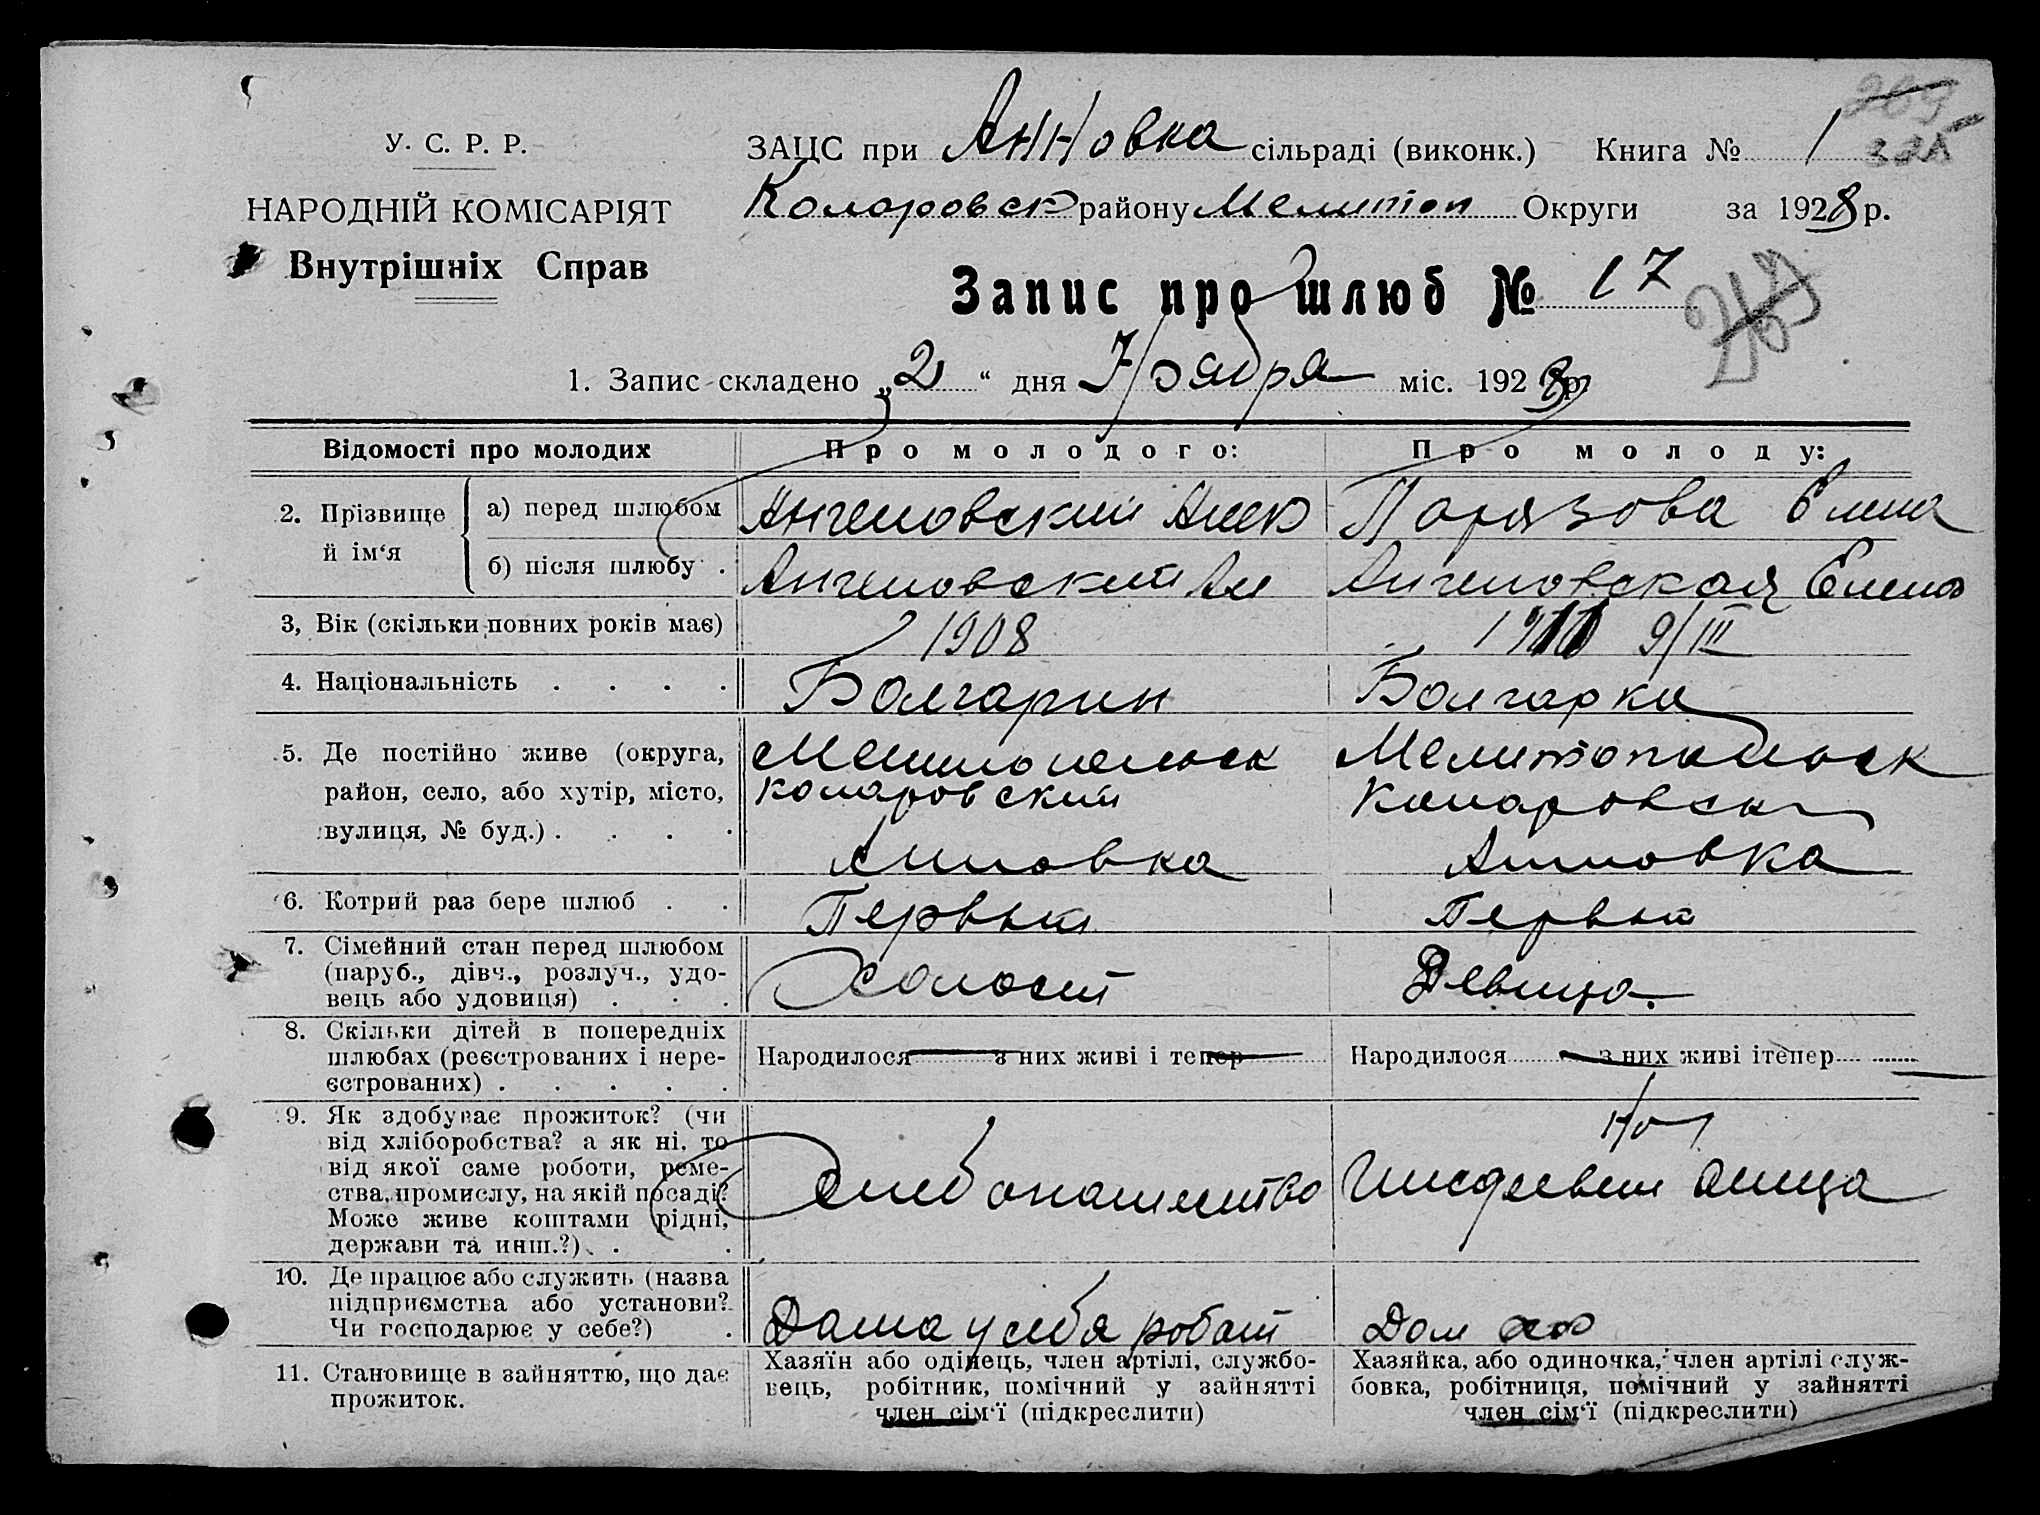 У. С. Р. Р.
НАРОДНІЙ КОМІСАРІЯТ
Внутрішніх Справ
ЗАЦС при Анновка сільраді (виконк.) Книга № 1
325
Коларовск району Мелитоп Округи за 1928 р.
Запис про шлюб № 17
1. Запис складено „2“ дня Ноября міс. 1928 р.
Відомості про молодих Про молодого: Про молоду:
2. Прізвище й ім‘я
а) перед шлюбом Ангеловский Алек Парязова Елена
б) після шлюбу . Ангеловский Ал Ангеловская Елена
3, Вік (скільки повних років має) 1908 9/III
4. Національність . . . . Болгарин Болгарка
5. Де постійно живе (округа, Мелитопольск Мелитопольск
район, село, або хутір, місто, Коларовский Коларовск
вулиця, № буд.) . . . .
Анновка Анновка
6. Котрий раз бере шлюб . . Первый Первый
7. Сімейний стан перед шлюбом
(паруб., дівч., розлуч., удо- Холост Девица
вець або удовиця) . . .
8. Скільки дітей в попередніх
шлюбах (реєстрованих і нере- Народилося з них живі і тепер Народилося з них живі ітепер
єстрованих) . . . . .
9. Як здобуває прожиток? (чи
від хліборобства? а як ні, то
від якої саме роботи, реме- Хлебопашество
ства, промислу, на якій посаді?
Може живе коштами рідні,
держави та инш.?) . .
10. Де працює або служить (назва
підприємства або установи?
Чи господарює у себе?) . Дома у себя работ Дом хоз
11. Становище в зайняттю, що дає прожиток.
Хазяїн або одінець, член артілі, службо- Хазяйка, або одиночка, член артілі служ-
вець, робітник, помічний у зайнятті бовка, робітниця, помічний у зайнятті
член сім‘ї (підкреслити) член сім‘ї (підкреслити)